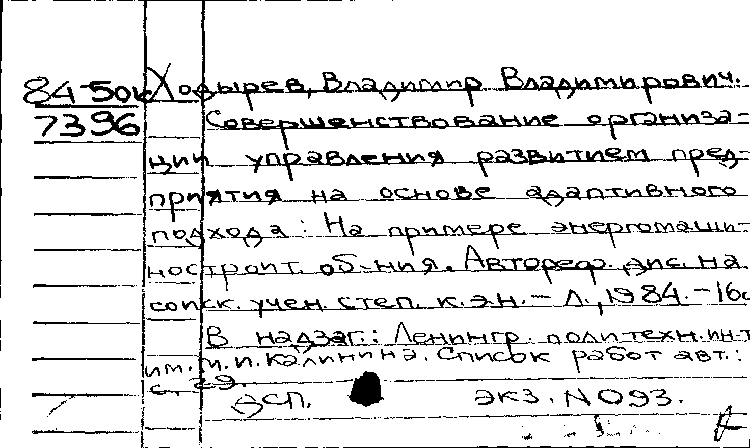 84-50к Ходырев, Владимир Владимирович.
7396 Совершенствование организа-
ции управления развитием пред-
приятия на основе адаптивного
подхода: На примере энергомаши-
ностроит. об-ния. Автореф. дис. на
соиск. учен. степ. к.э.н. - Л., 1984. - 16с
В надзаг.: Ленингр. политехн. ин-т
им. М.И. Калинина. Список работ авт.:
ДСП. экз. N 093.